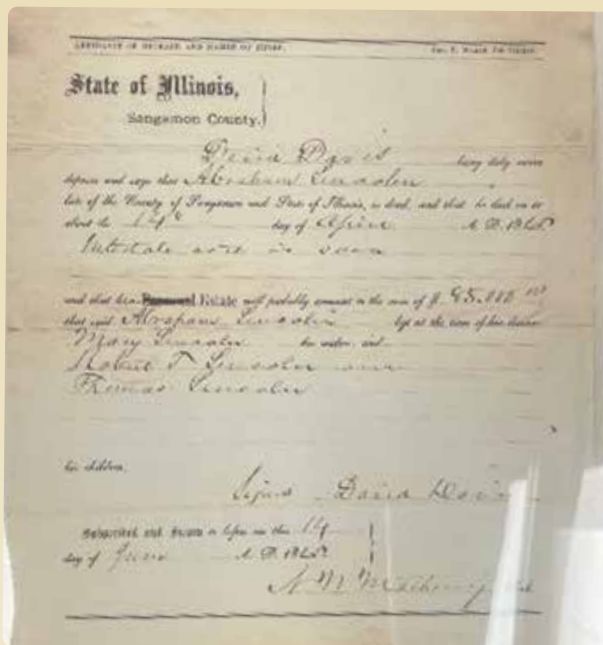 AFFIDAVIT OF DECEASE AND NAMES OF HEIRS.
State of Illinois,
Sangamon County.
David Davis being duly sworn
deposes and says that Abraham Lincoln
late of the County of Sangamon and State of Illinois, is dead, and that he died on or
about the 14th day of April A. D. 1865
Intestate
and that his Personal Estate will probably amount to the sum of $ 85.000 00
that said Abraham Lincoln left at the time of his decease
Mary Lincoln his widow, and
Robert T Lincoln and
Thomas Lincoln
his children.
Signed David Davis
Subscribed and Sworn to before me this 14
day of June A. D. 1865